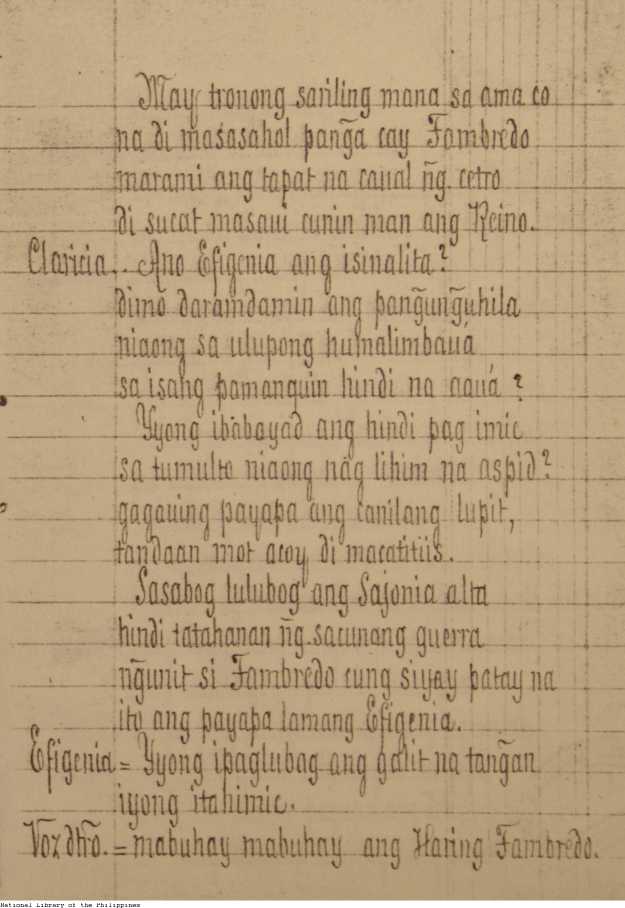 May tronong sariling mana sa ama co
na di masasahol pang̃a cay Fambredo
marami ang tapat na caual ng̃. cetro
di sucat masaui cunin man ang Reino.
Claricia.. Ano Efigenia ang isinalita?
dimo daramdamin ang pang̃ung̃uhila
niaong sa ulupong humalimbauá
sa isang pamanquin hindi na aauá ?
Yyong ibabayad ang hindi pag imic
sa tumulto niaong nag lihim na aspid?
gagauing payapa ang canilang lupit,
tandaan mot acoy di macatitiis.
Sasabog lulubog ang Sajonia alta
hindi tatahanan ng̃. sacunang guerra
ng̃unit si Fambredo cung siyay patay na
ito ang payapa lamang Efigenia.
Efigenia = Yyong ipaglubag ang galit na tang̃an
iyong itahimic.
Voz dtro. = mabuhay mabuhay ang Haring Fambredo.
National Library of the Philippines